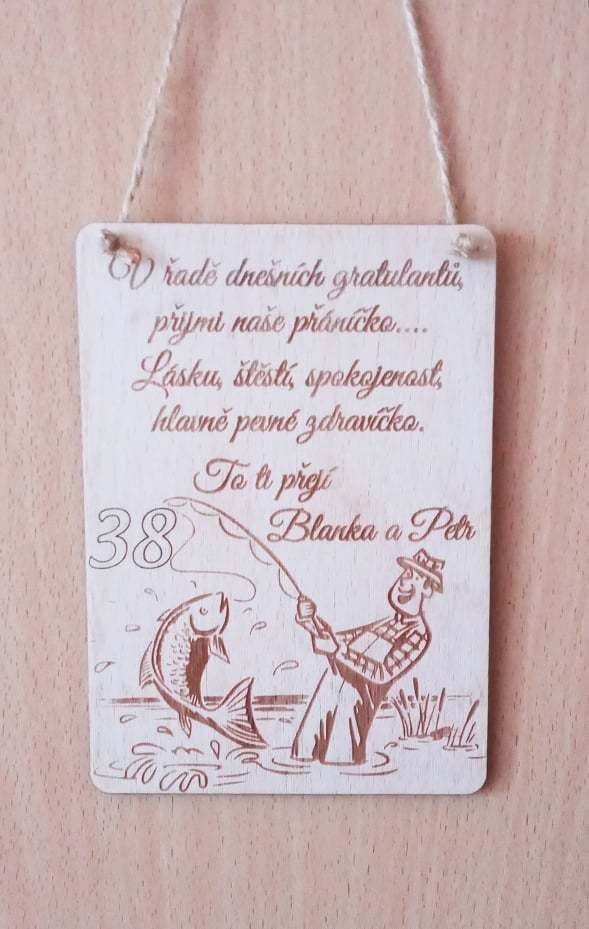 V řadě dnešních gratulantů,
přijmi naše přáníčko....
Lásku, štěstí, spokojenost,
hlavně pevné zdravíčko.
To ti přejí
Blanka a Petr
38